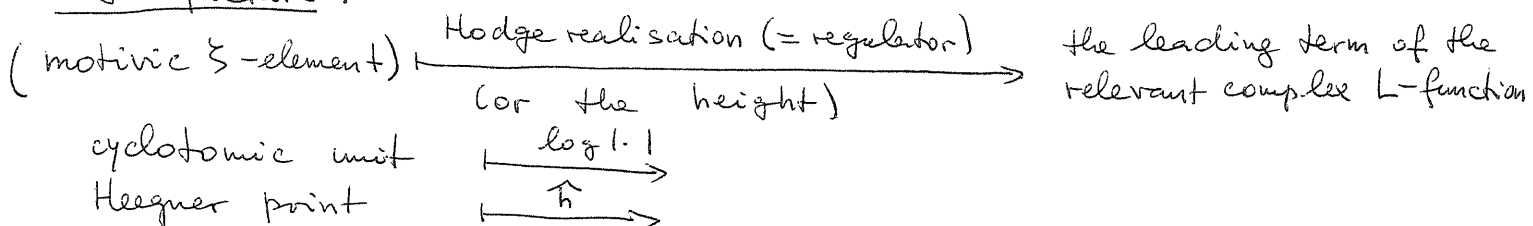 (motivic ζ-element) ⟼ Hodge realisation (= regulator) the leading term of the
(or the height) relevant complex L-function
cyclotomic unit ⟼ log |·|
Heegner point ⟼ ĥ